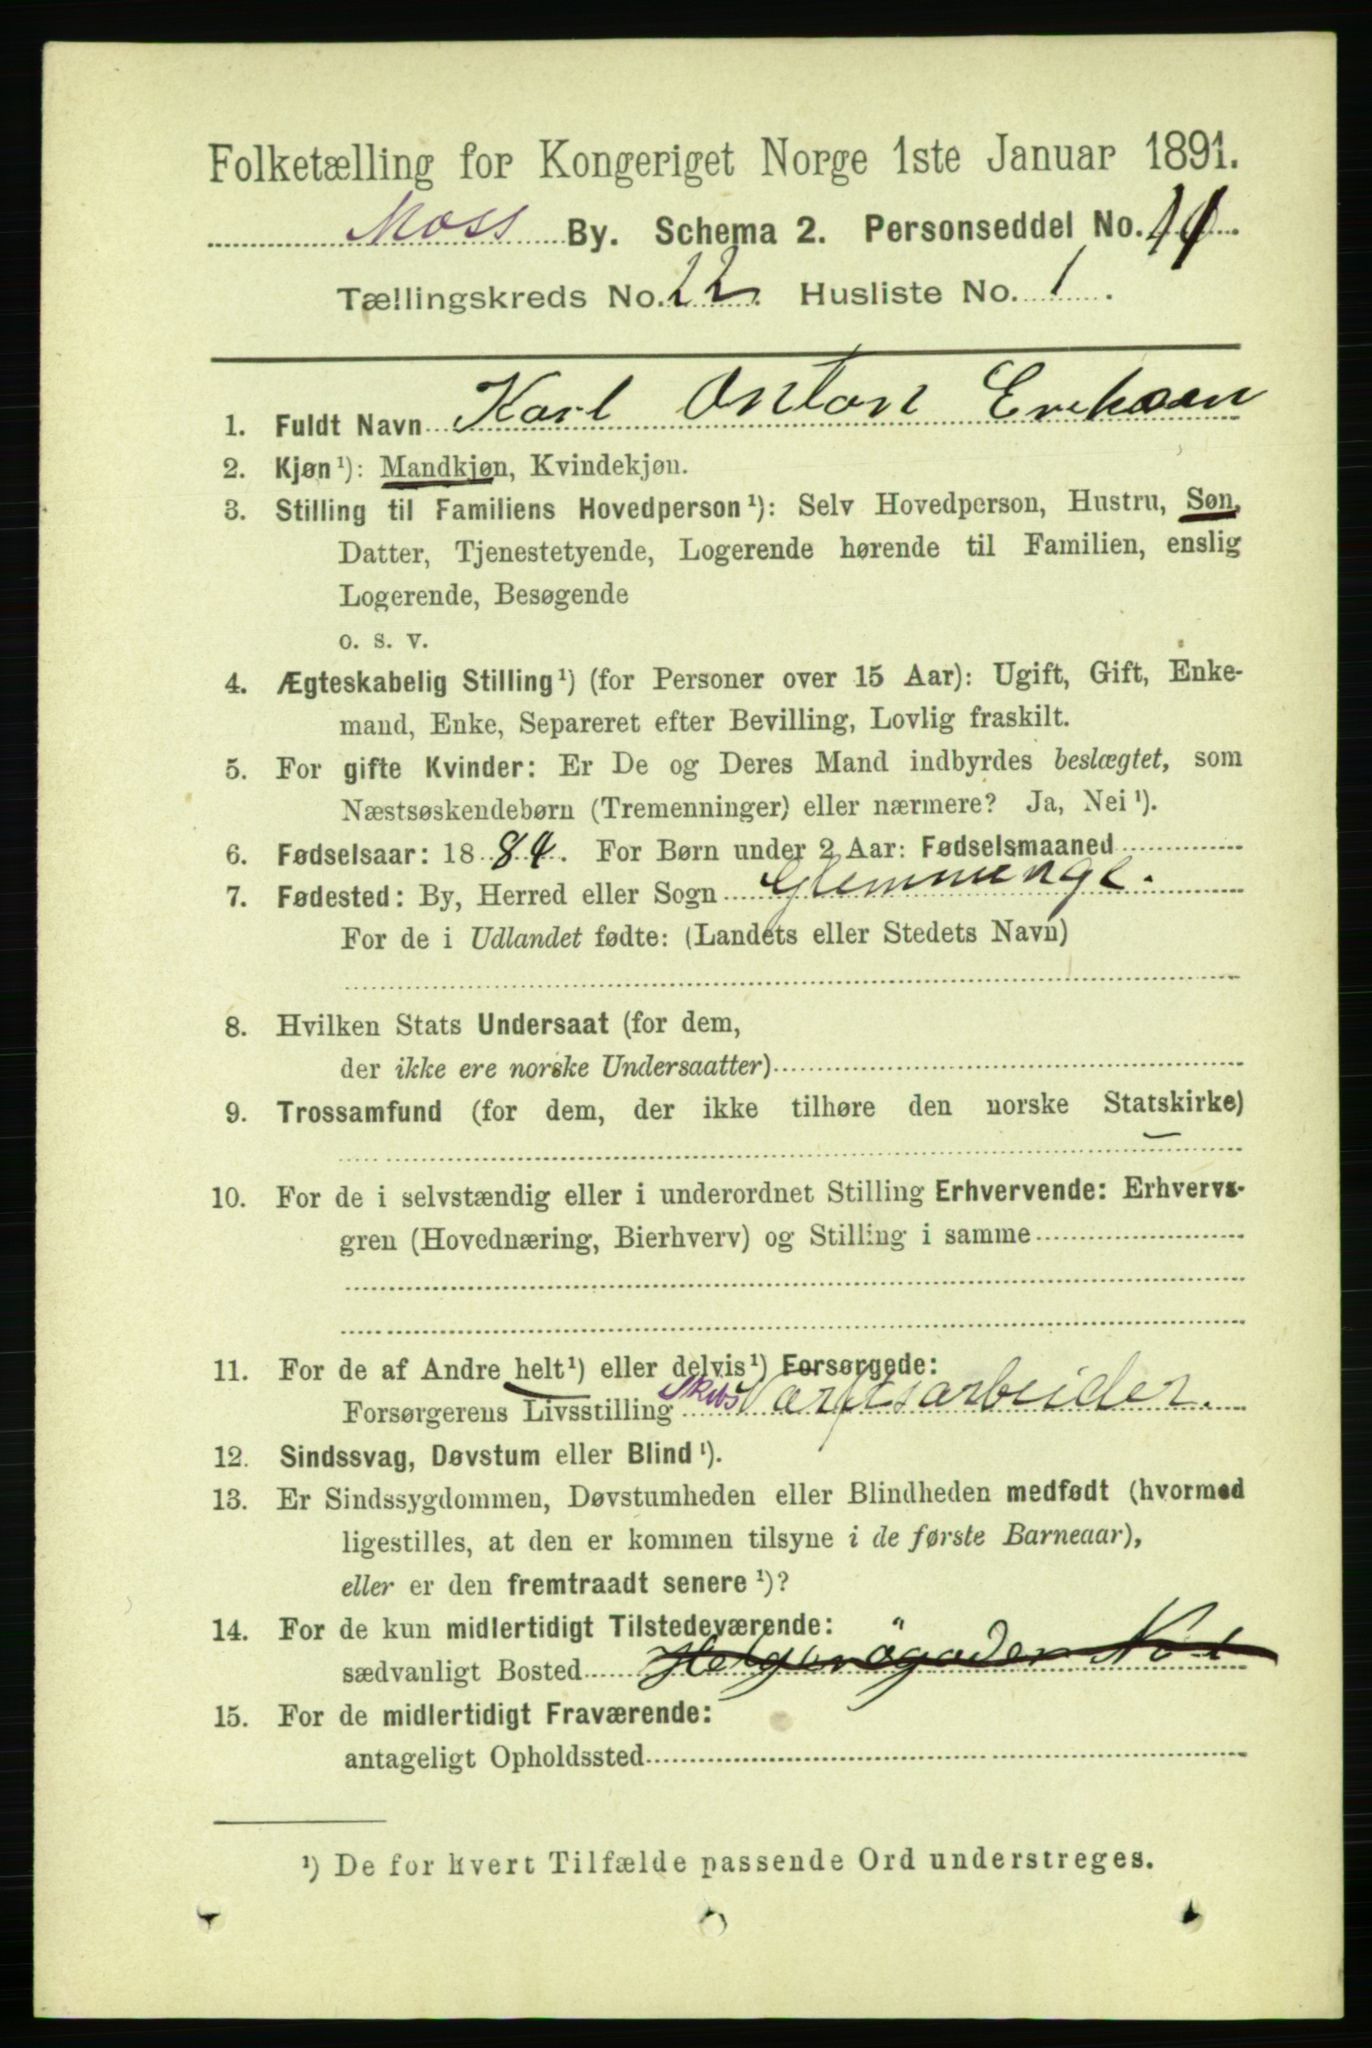 Folketælling for Kongeriget Norge 1ste Januar 1891.
Moss By. Schema 2. Personseddel No. 14.
Tællingskreds No. 22. Husliste No. 1.
1. Fuldt Navn Karl Anton Eriksen
2. Kjøn¹): Mandkjøn, Kvindekjøn.
3. Stilling til Familiens Hovedperson¹): Selv Hovedperson, Hustru, Søn,
Datter, Tjenestetyende, Logerende hørende til Familien, enslig
Logerende, Besøgende
o. s. v.
4. Ægteskabelig Stilling¹) (for Personer over 15 Aar): Ugift, Gift, Enke-
mand, Enke, Separeret efter Bevilling, Lovlig fraskilt.
5. For gifte Kvinder: Er De og Deres Mand indbyrdes beslægtet, som
Næstsøskendebørn (Tremenninger) eller nærmere? Ja, Nei¹).
6. Fødselsaar: 1884. For Børn under 2 Aar: Fødselsmaaned
7. Fødested: By, Herred eller Sogn Glemminge.
For de i Udlandet fødte: (Landets eller Stedets Navn)
8. Hvilken Stats Undersaat (for dem,
der ikke ere norske Undersaatter)
9. Trossamfund (for dem, der ikke tilhøre den norske Statskirke)
10. For de i selvstændig eller i underordnet Stilling Erhvervende: Erhvervs-
gren (Hovednæring, Bierhverv) og Stilling i samme
11. For de af Andre helt¹) eller delvis¹) Forsørgede:
Forsørgerens Livsstilling Skibs Værftsarbeider.
12. Sindssvag, Døvstum eller Blind¹).
13. Er Sindssygdommen, Døvstumheden eller Blindheden medfødt (hvormed
ligestilles, at den er kommen tilsyne i de første Barneaar),
eller er den fremtraadt senere¹)?
14. For de kun midlertidigt Tilstedeværende:
sædvanligt Bosted No 1
15. For de midlertidigt Fraværende:
antageligt Opholdssted
¹) De for hvert Tilfælde passende Ord understreges.